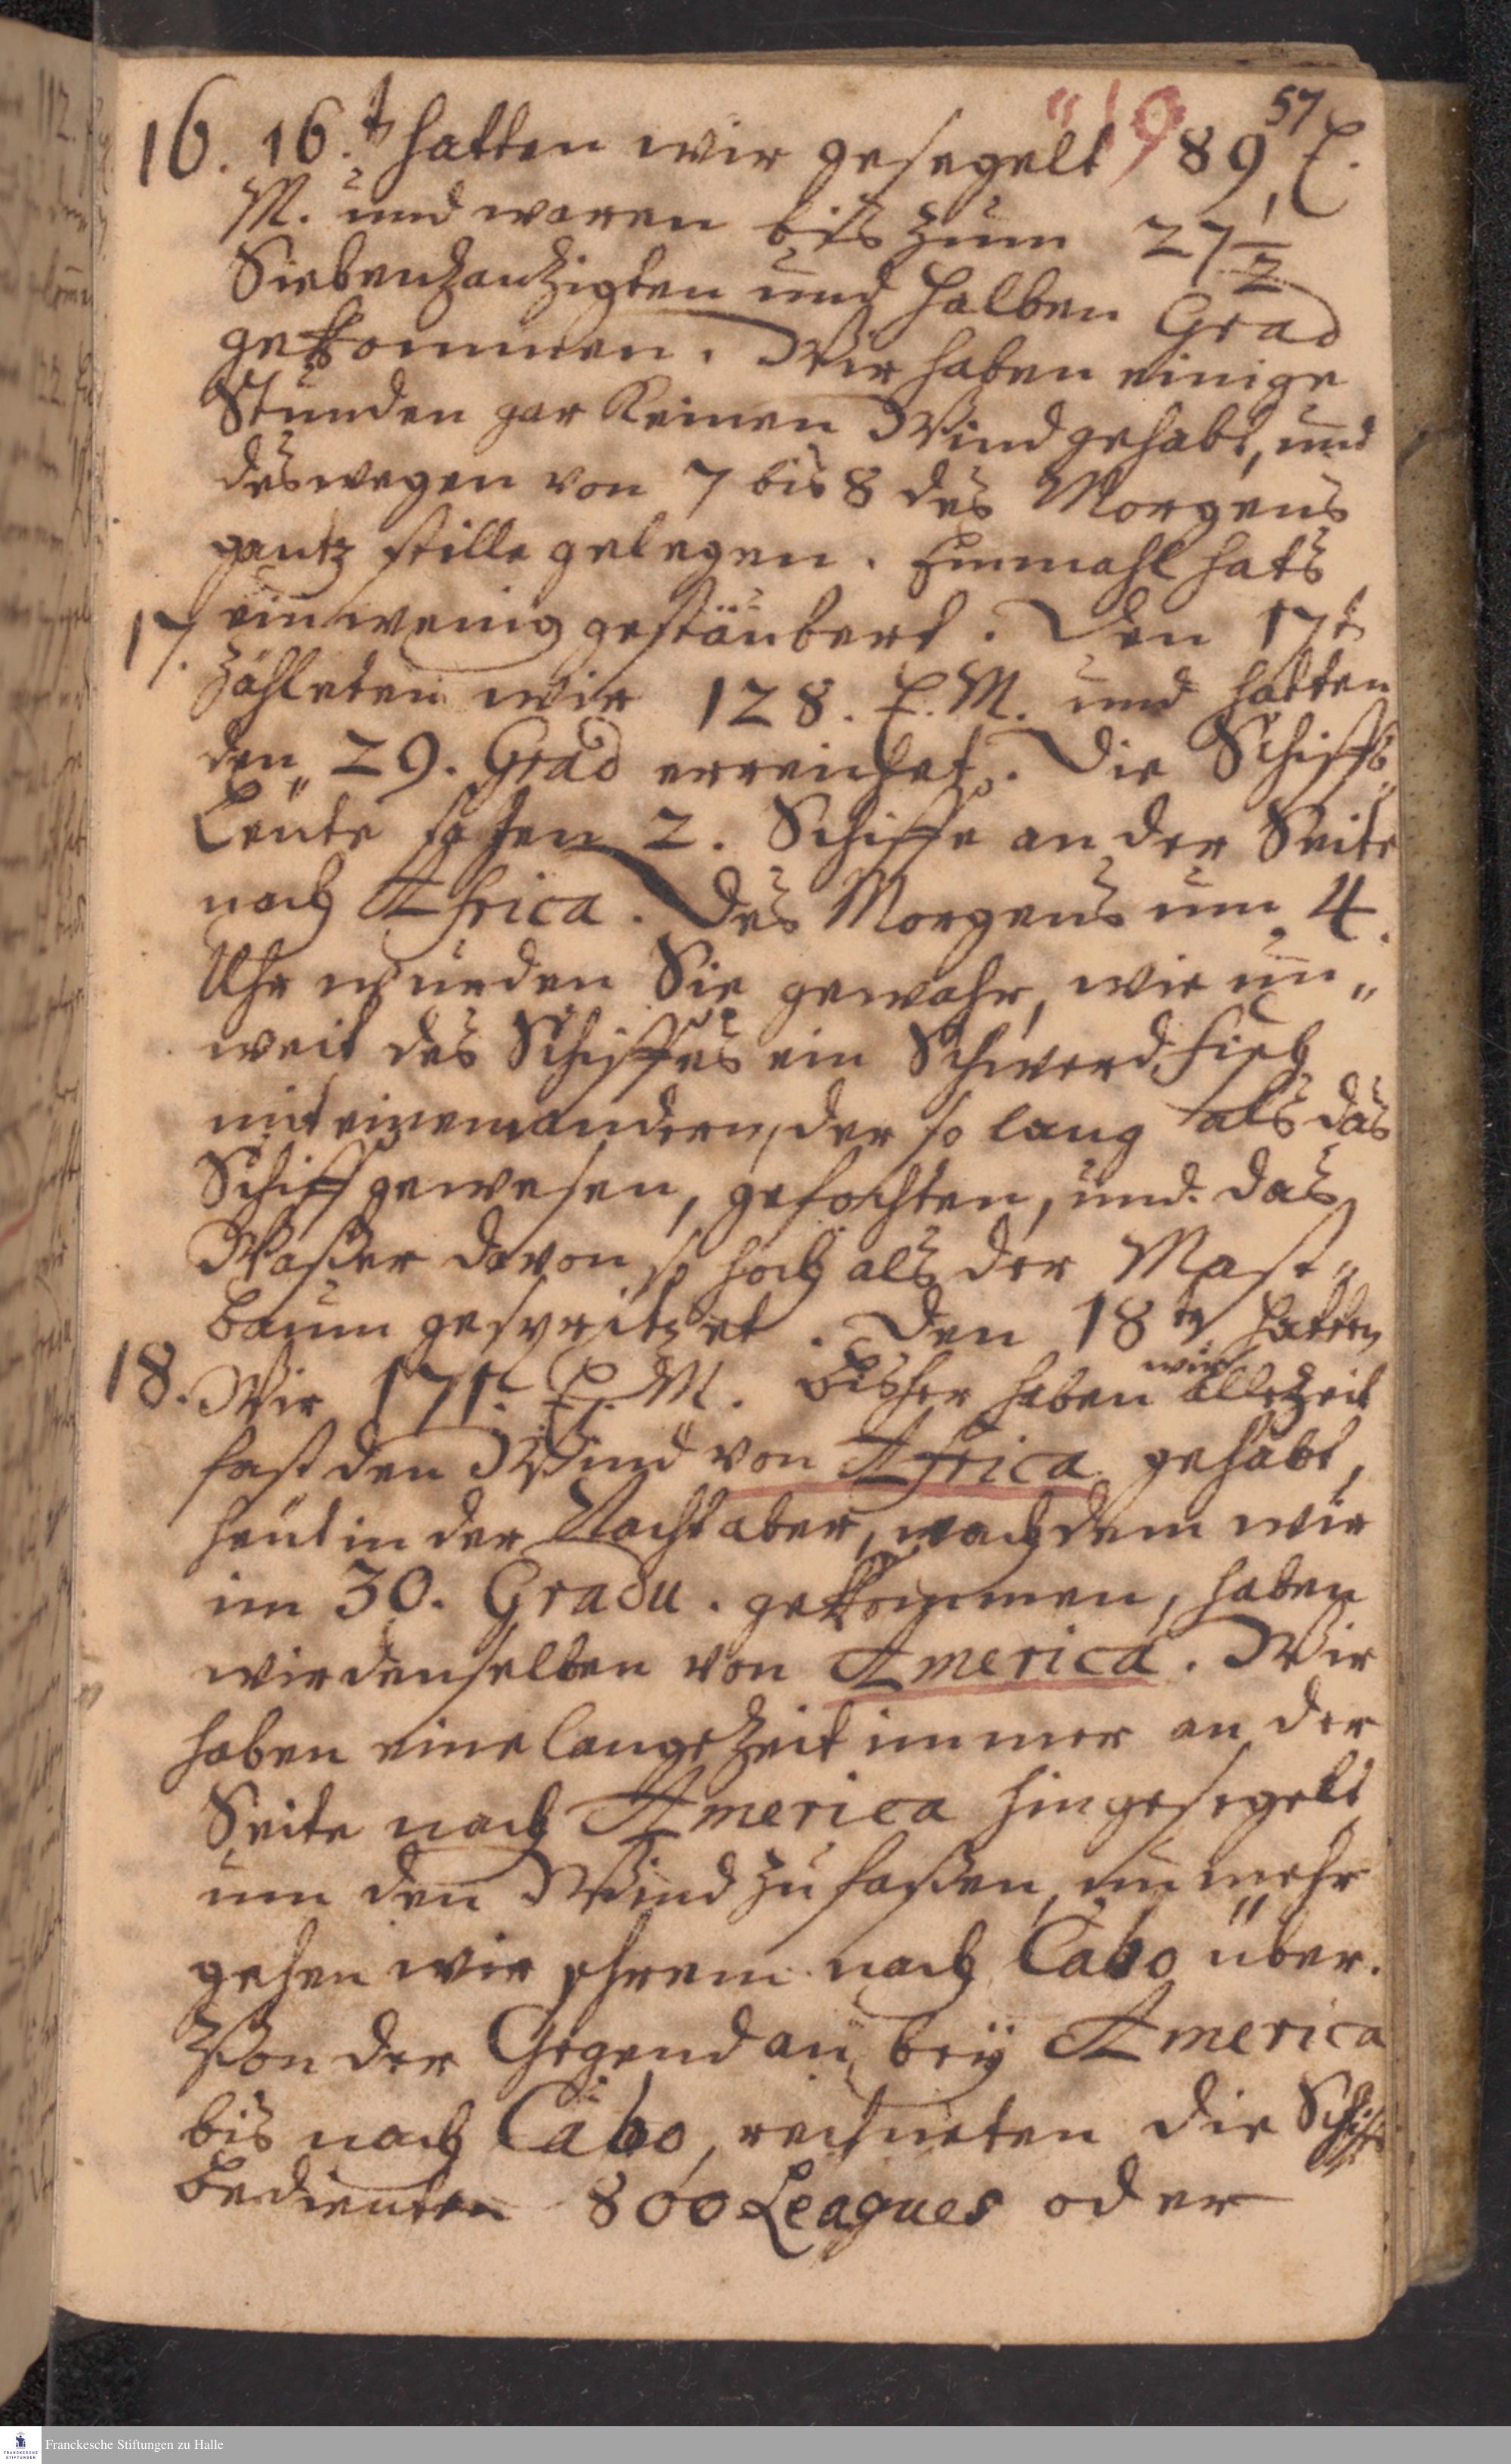 57
"19
16. 16.t hatten wir gesegelt 89, E.
M. und waren bis zum 27 1/2
Siebenzanzigten und halben Grad
gekommen. Wir haben einige
Stunden gar keinen Wind gehabt, und
deswegen von 7 bis 8 des Morgens
gantz stille gelegen. Einmahl hats
17. ein wenig gestäubert. Den 17t
zähleten wir 128. E. M. und hatten
den 29. Grad erreichet. Die Schiffs„
Leute sahen 2. Schiffe an der Seite
nach Africa. Des Morgens um 4.
Uhr wurden Sie gewahr, wie un„
weit des Schiffes ein Schwerd Fisch
mit einem andern, der so lang als das
Schiff gewesen, gefochten, und das
Waßer davon so hoch als der Mast„
baum gespritzet. Den 18ten hatten
18. Wir 171. E. M. Bisher haben wir allezeit
fast den Wind von Africa gehabt,
heut in der Nacht aber, nachdem wir
im 30. Gradu. gekommen, haben
wir denselben von America. Wir
haben eine lange Zeit immer an der
Seite nach America hingesegelt
um den Wind zu faßen, nun mehr
gehen wir nach Cabo über.
Von der Gegend an bey America
bis nach Cabo, rechneten die Schiffs
bedienten 800 Leagues oder
Franckesche Stiftungen zu Halle